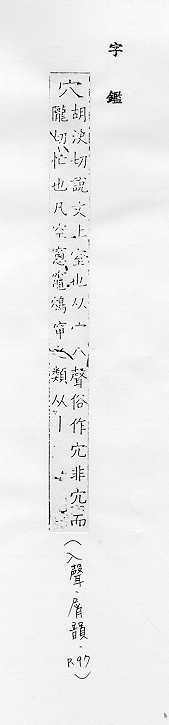 字鑑
穴
胡決切說文土室也从宀八聲俗作宂非宂而
隴切忙也凡空窻竈窜之類从丨
(入聲·屑韻·P.97)